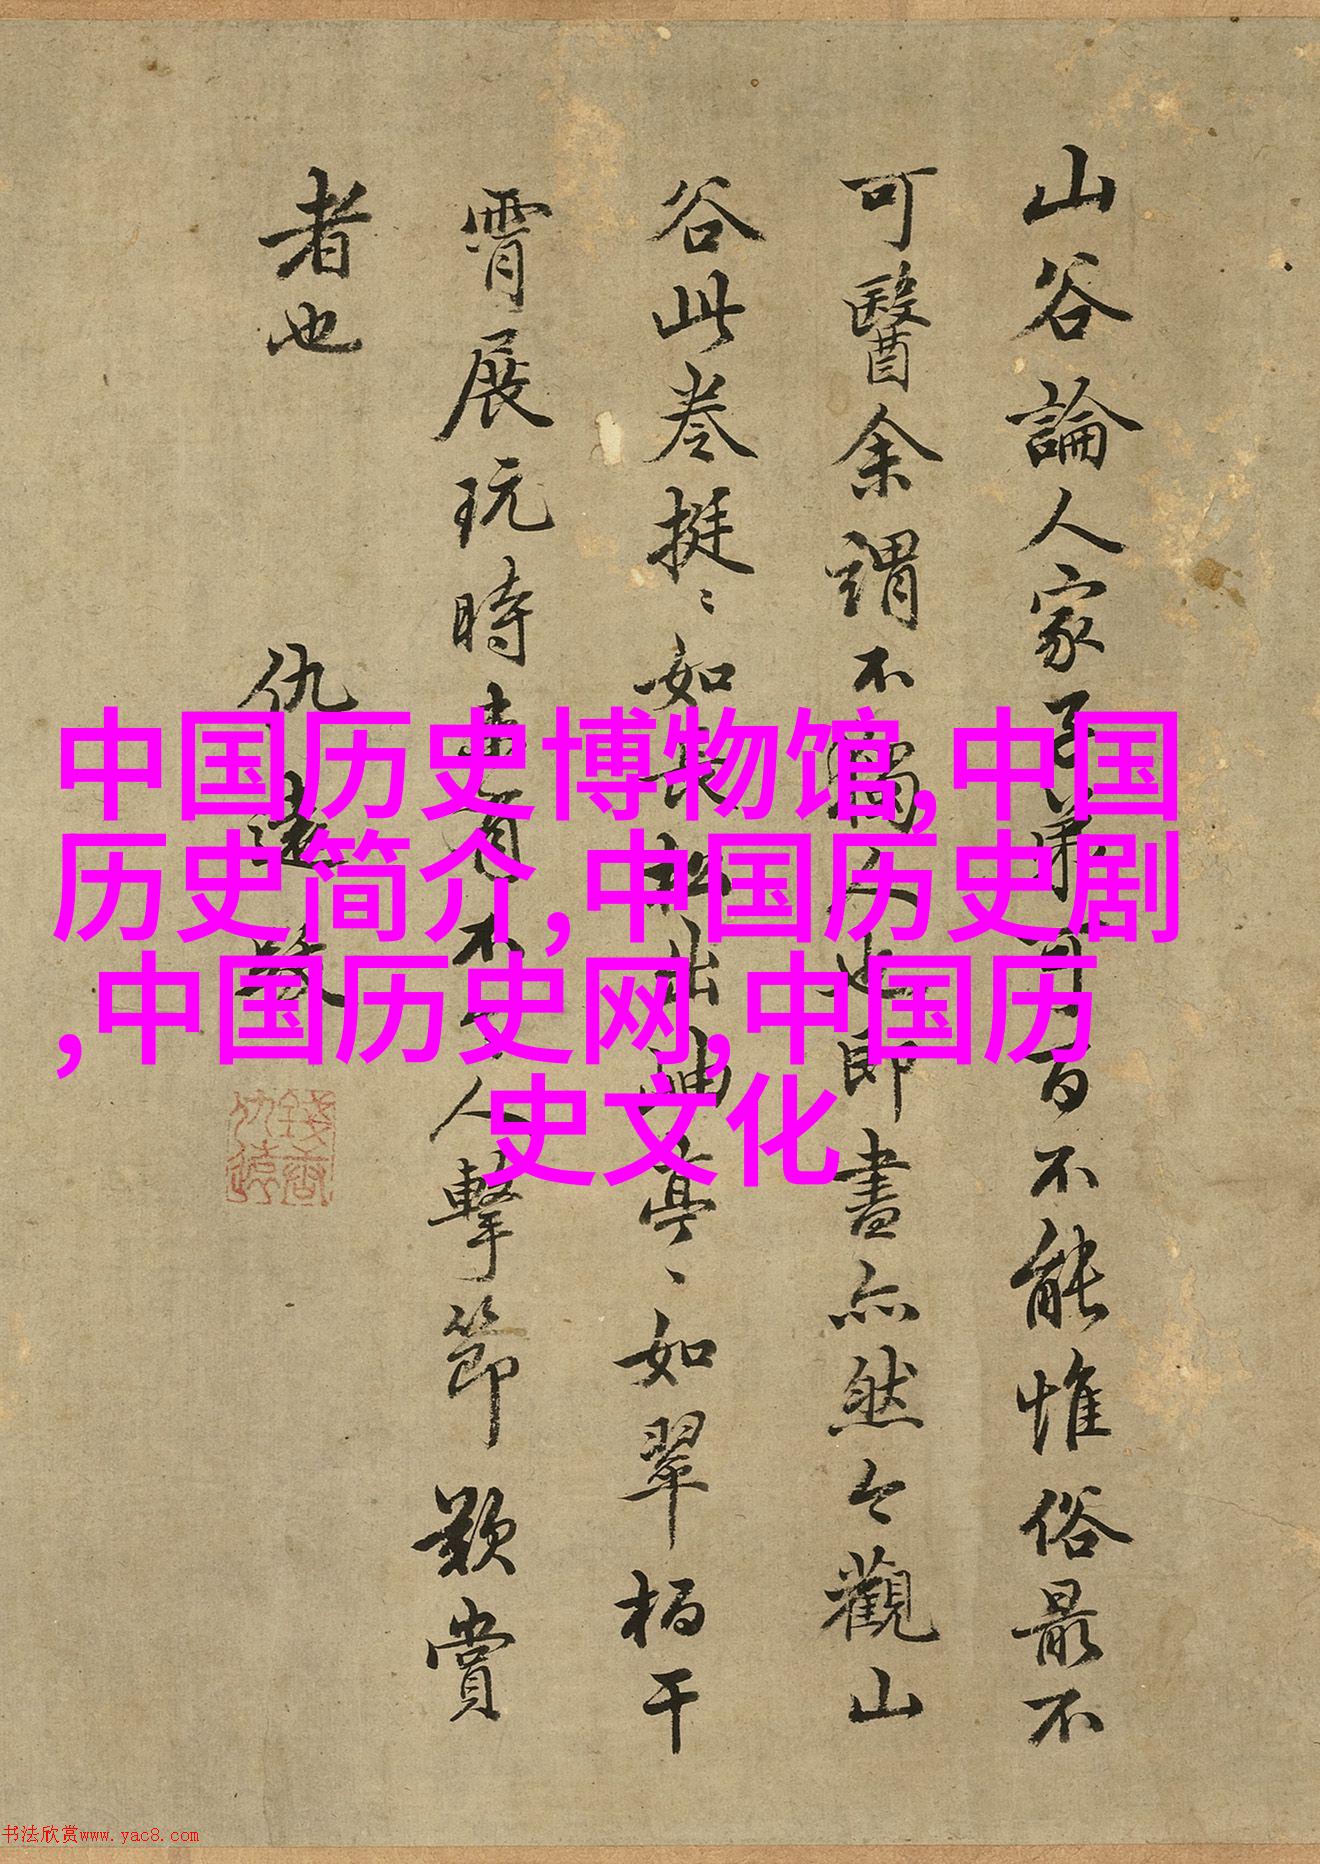 山谷論人家子弟百不能惟俗最不
可醫余謂不獨人也即畫亦然今觀山
谷此卷挺〻如長松出 亭〻如翠柏干
霄展玩時 有不 人擊節歎賞
者也
仇遠 
中国历史博物馆,中国
历史简介,中国历史剧
,中国历史网,中国历
史文化
书法欣赏www.yac8.com